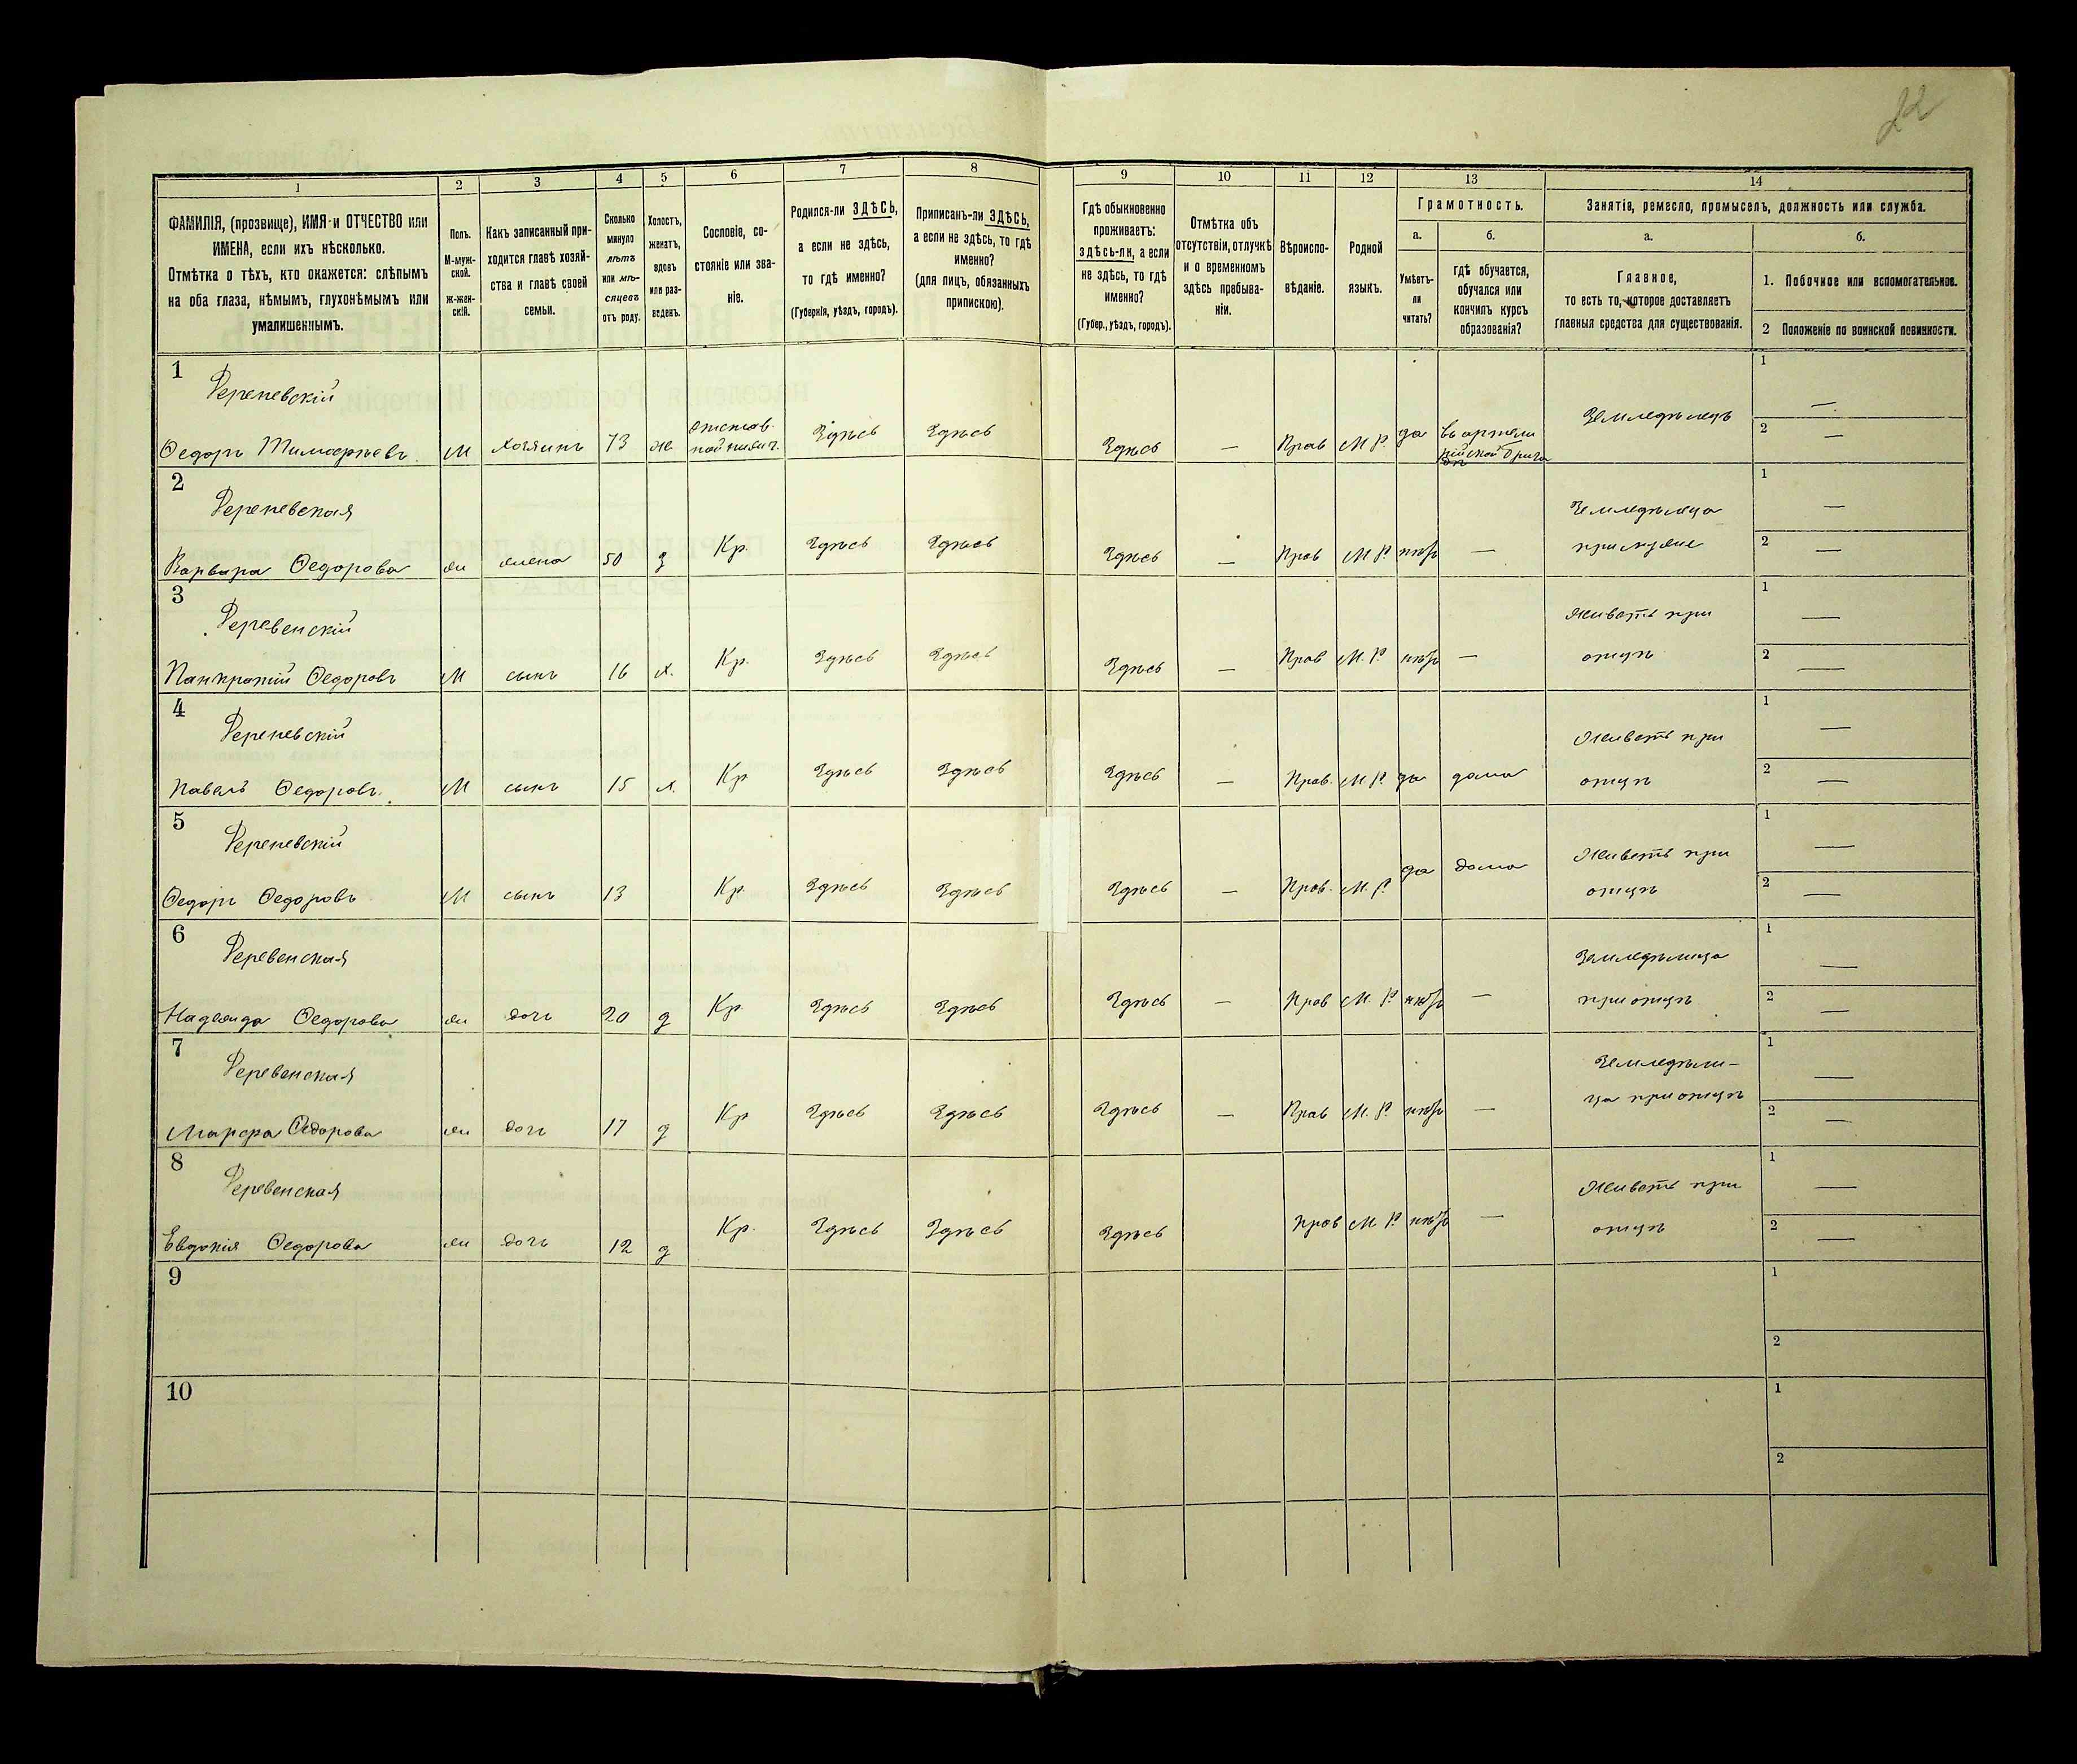 22
1 2 3 4 5 6 7 8 9 10 11 12 13 14
ФАМИЛІЯ, (прозвище), ИМЯ и ОТЧЕСТВО или
ИМЕНА, если ихъ нѣсколько.
Отмѣтка о тѣхъ, кто окажется: слѣпымъ
на оба глаза, нѣмымъ, глухонѣмымъ или
умалишеннымъ.
Полъ.
М-муж-
ской.
ж-жен-
скій.
Какъ записанный при-
ходится главѣ хозяй-
ства и главѣ своей
семьи.
Сколько
минуло
лѣтъ
или мѣ-
сяцевъ
отъ роду.
Холостъ,
женатъ,
вдовъ
или раз-
веденъ.
Сословіе, со-
стояніе или зва-
ніе.
Родился-ли ЗДѢСЬ,
а если не здѣсь,
то гдѣ именно?
(Губернія, уѣздъ, городъ).
Приписанъ-ли ЗДѢСЬ,
а если не здѣсь, то гдѣ
именно?
(для лицъ, обязанныхъ
припискою).
Гдѣ обыкновенно
проживаетъ:
ЗДѢСЬ-ЛИ, а если
не здѣсь, то гдѣ
именно?
(Губер., уѣздъ, городъ).
Отмѣтка объ
отсутствіи, отлучкѣ
и о временномъ
здѣсь пребыва-
ніи.
Вѣроиспо-
вѣданіе.
Родной
языкъ.
Грамотность.
а.
Умѣетъ-
ли
читать?
б.
гдѣ обучается,
обучался или
кончилъ курсъ
образованія?
Занятія, ремесло, промыселъ, должность или служба.
а.
Главное,
то есть то, которое доставляетъ
главныя средства для существованія.
б.
1. Побочное или вспомогательное.
2 Положеніе по воинской повинности.
1
Деревевскій
Ѳедоръ Тимофѣевъ М хозяинъ 73 же отстав. Здѣсь Здѣсь Здѣсь — Прав М Р. да въ Земледѣлецъ
1 —
2 —
2
Деревевская
Варвара Ѳедорова жи жена 50 з Кр. Здѣсь Здѣсь Здѣсь — Прав М Р нѣтъ — Земледѣлица
при мужѣ
1 —
2 —
3
Деревенскій
Панкратій Ѳедоровъ М сынъ 16 х. Кр. Здѣсь Здѣсь Здѣсь — Прав М. Р. нѣтъ — Живетъ при
отцѣ
1 —
2 —
4
Деревевскій
Павелъ Ѳедоровъ. М сынъ 15 х. Кр Здѣсь Здѣсь Здѣсь — Прав. М. Р. да дома Живетъ при
отцѣ
1 —
2 —
5
Деревевскій
Ѳедоръ Ѳедоровъ М сынъ 13 Кр. Здѣсь Здѣсь Здѣсь — Прав. М. Р. да дома Живетъ при
отцѣ
1 —
2 —
6
Деревенская
Надежда Ѳедорова жи дочь 20 д Кр. Здѣсь Здѣсь Здѣсь — Прав М. Р. нѣтъ — Земледѣлица
при отцѣ
1 —
2 —
7
Деревенская
Марфа Ѳедорова жи дочь 17 д Кр Здѣсь Здѣсь Здѣсь — Прав М. Р. нѣтъ — Земледѣли-
ца при отцѣ
1 —
2 —
8
Деревенская
Евдокія Ѳедорова жи дочь 12 д Кр. Здѣсь Здѣсь Здѣсь Прав М Р. нѣтъ — Живетъ при
отцѣ
1 —
2 —
9
1
2
10
1
2